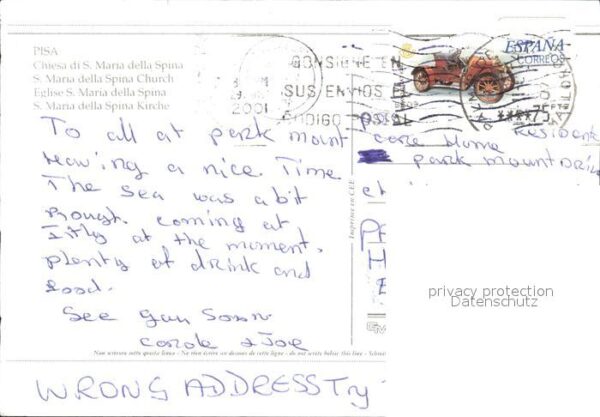 PISA
Chiesa di S. Maria della Spina
S. Maria della Spina Church
Eglise S. Maria della Spina
S. Maria della Spina Kirche
2001
CONSIGNE EN
SUS ENVIOS
CODIGO POSTAL
ESPAÑA
CORREOS
****75 PTS
To all at park mount
Having a nice. Time
The sea was a bit
Rough. coming at
Itly at the moment.
plenty of drink and
food.
See you Soon
carole & Joe
Residents
care Home
park mount Drive
ch
Imprime en CEE
Non scrivere sotto questa linea - Ne rien écrire au dessous de cette ligne - do not write below this line -
WRONG ADDRESS Try
privacy protection
Datenschutz